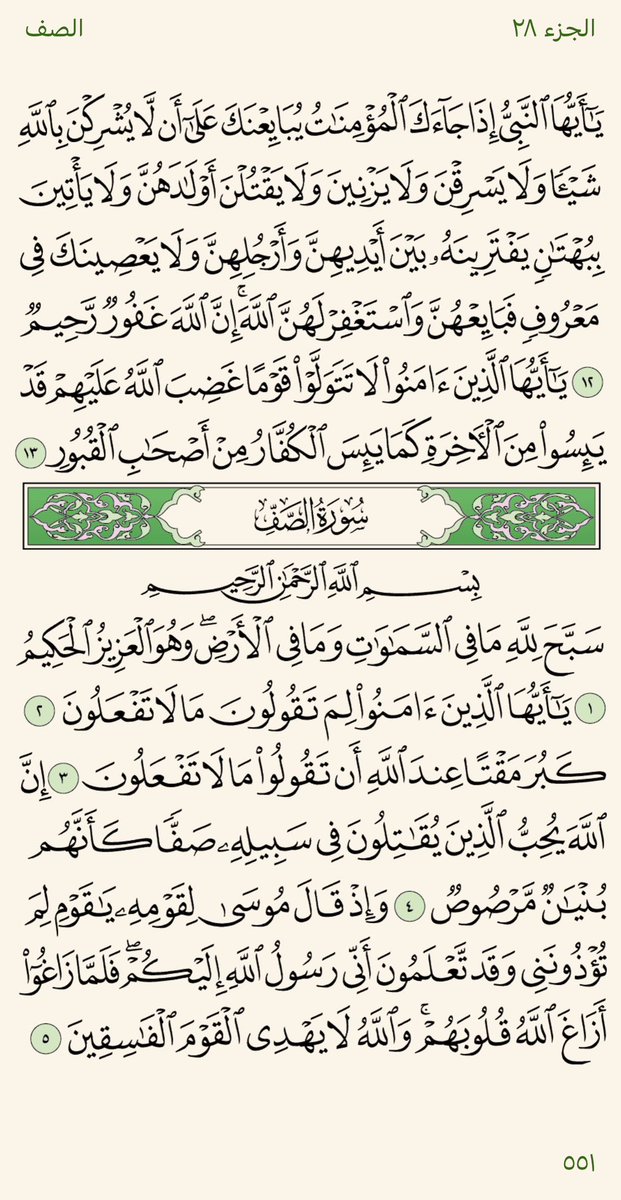 الجزء ٢٨
الصف
يَٰٓأَيُّهَا ٱلنَّبِيُّ إِذَا جَآءَكَ ٱلْمُؤْمِنَٰتُ يُبَايِعْنَكَ عَلَىٰٓ أَن لَّا يُشْرِكْنَ بِٱللَّهِ
شَيْـًٔا وَلَا يَسْرِقْنَ وَلَا يَزْنِينَ وَلَا يَقْتُلْنَ أَوْلَٰدَهُنَّ وَلَا يَأْتِينَ
بِبُهْتَٰنٍ يَفْتَرِينَهُۥ بَيْنَ أَيْدِيهِنَّ وَأَرْجُلِهِنَّ وَلَا يَعْصِينَكَ فِى
مَعْرُوفٍ فَبَايِعْهُنَّ وَٱسْتَغْفِرْ لَهُنَّ ٱللَّهَ ۚ إِنَّ ٱللَّهَ غَفُورٌ رَّحِيمٌ
١٢ يَٰٓأَيُّهَا ٱلَّذِينَ ءَامَنُوا۟ لَا تَتَوَلَّوْا۟ قَوْمًا غَضِبَ ٱللَّهُ عَلَيْهِمْ قَدْ
يَئِسُوا۟ مِنَ ٱلْءَاخِرَةِ كَمَا يَئِسَ ٱلْكُفَّارُ مِنْ أَصْحَٰبِ ٱلْقُبُورِ ١٣
سُورَةُ الصَّفِّ
بِسْمِ ٱللَّهِ ٱلرَّحْمَٰنِ ٱلرَّحِيمِ
سَبَّحَ لِلَّهِ مَا فِى ٱلسَّمَٰوَٰتِ وَمَا فِى ٱلْأَرْضِ ۖ وَهُوَ ٱلْعَزِيزُ ٱلْحَكِيمُ
١ يَٰٓأَيُّهَا ٱلَّذِينَ ءَامَنُوا۟ لِمَ تَقُولُونَ مَا لَا تَفْعَلُونَ ٢
كَبُرَ مَقْتًا عِندَ ٱللَّهِ أَن تَقُولُوا۟ مَا لَا تَفْعَلُونَ ٣ إِنَّ
ٱللَّهَ يُحِبُّ ٱلَّذِينَ يُقَٰتِلُونَ فِى سَبِيلِهِۦ صَفًّا كَأَنَّهُم
بُنْيَٰنٌ مَّرْصُوصٌ ٤ وَإِذْ قَالَ مُوسَىٰ لِقَوْمِهِۦ يَٰقَوْمِ لِمَ
تُؤْذُونَنِى وَقَد تَّعْلَمُونَ أَنِّى رَسُولُ ٱللَّهِ إِلَيْكُمْ ۖ فَلَمَّا زَاغُوٓا۟
أَزَاغَ ٱللَّهُ قُلُوبَهُمْ ۚ وَٱللَّهُ لَا يَهْدِى ٱلْقَوْمَ ٱلْفَٰسِقِينَ ٥
٥٥١